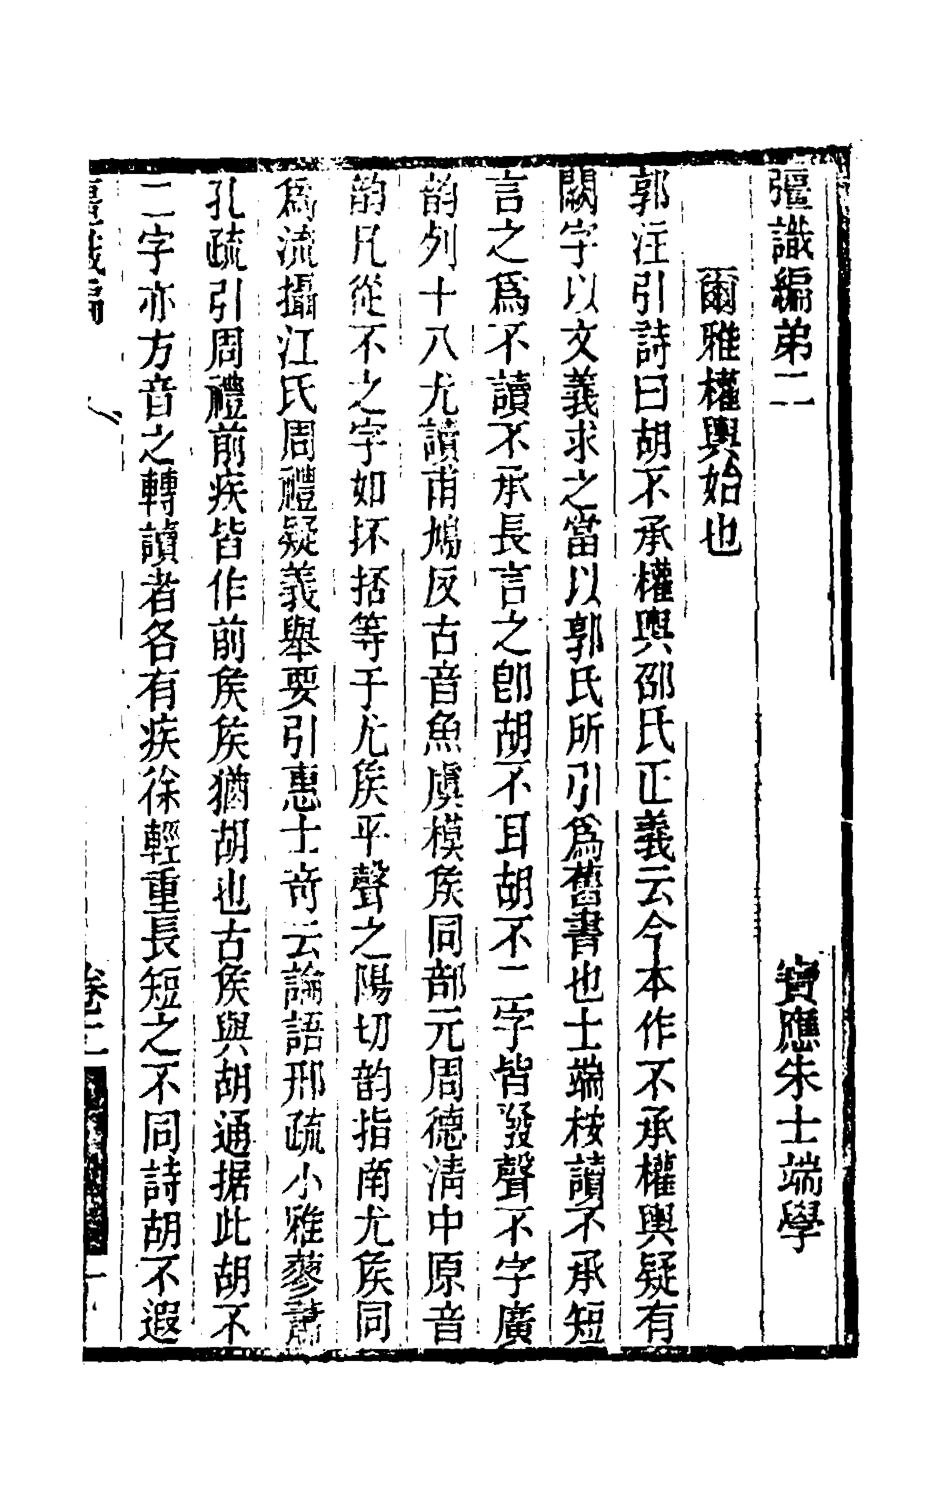 彊識編弟二
寶應朱士端學
爾雅權輿始也
郭注引詩曰胡不承權輿邵氏正義云今本作不承權輿疑有
闕字以文義求之當以郭氏所引為舊書也士端桉讀不承短
言之為不讀不承長言之卽胡不耳胡不二字皆發聲不字廣
韵列十八尤讀甫鳩反古音魚虞模矦同部元周德淸中原音
韵凡從不之字如抔捂等于尤矦平聲之陽切韵指南尤矦同
為流攝江氏周禮疑義舉要引惠士奇云論語邢疏小雅蓼蕭
孔疏引周禮前疾皆作前矦矦猶胡也古矦與胡通据此胡不
二字亦方音之轉讀者各有疾徐輕重長短之不同詩胡不遐
彊識編
卷二
一